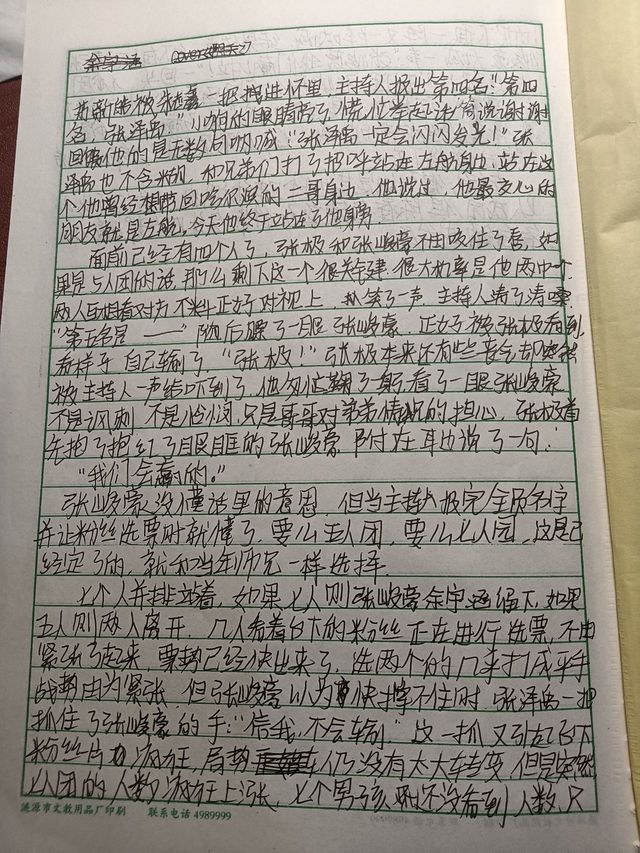 余宇涵
名，张泽禹。”小狗的眼睛亮了，慌忙举起话筒说谢谢
回馈他的是无数句呐喊：“张泽禹一定会闪闪发光！”张
泽禹也不含糊，和兄弟们打了招呼站进左航身边，站在这
个他曾经想带回哈尔滨的二哥身边，他说过，他最交心的
朋友就是左航，今天他终于站在了他身旁
面前已经有四个人了，张极和张峻豪不由咬住了唇，如
果是五人团的话，那么剩下这一个很关键，很大机率是他两中一个，
两人互相看对方，不料正好对视上，扒笑了一声，主持人清了清嗓
“第五名是——”随后瞟了一眼张峻豪，正好被张极看到，
看样子自己输了，“张极！”张极本来还有些丧气，却突然
被主持人一声给吓到了，他匆忙鞠了一躬，看了一眼张峻豪，
不是讽刺，不是，只是哥哥对弟弟情况的担心，张极首
先抱了抱红了眼眶的张峻豪，附在耳边说了一句：
“我们会赢的。”
张峻豪没懂话里的意思，但当主持人报完全员名字
并让粉丝选票时就懂了，要么五人团，要么七人团，这是已
经定了的，就和当年师兄一样选择。
七个人并排站着，如果七人则张峻豪余宇涵留下，如果
五人则两人离开，几人看着台下的粉丝正在进行选票，不由
紧张了起来，票势已经快出来了，选两个的几乎打成平手
战势由为紧张，但张峻豪以为快撑不住时，张泽禹一把
抓住了张峻豪的手：“信我，不会输”这一抓又引起台下
粉丝一片疯狂，局势仍没有太大转变，但是突然
七人团的人数疯狂上涨，七个男孩还没看到人数，只
涟源市文教用品厂印刷 联系电话 4989999